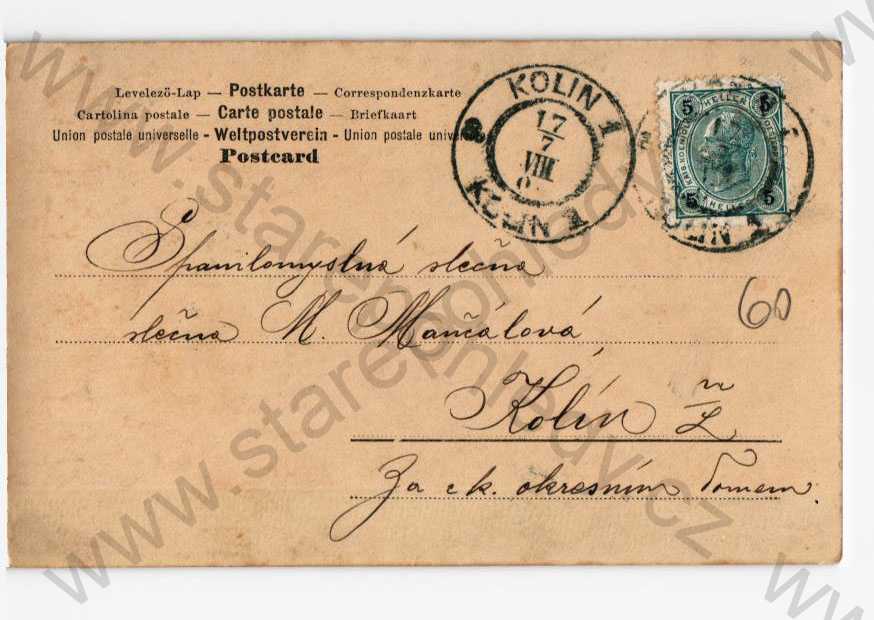 Levelező-Lap — Postkarte — Correspondenzkarte
Cartolina postale — Carte postale — Briefkaart
Union postale universelle - Weltpostverein - Union postale universelle
Postcard
KOLIN 1
17
7
VIII
KOLIN 1
5 HELLER 5
5 HELLER 5
KOLIN 1
Spanilomyslná slečna
slečna M. Mančálová
60
Kolín n
L
Za c k. okresním domem
www.starepohledy.cz